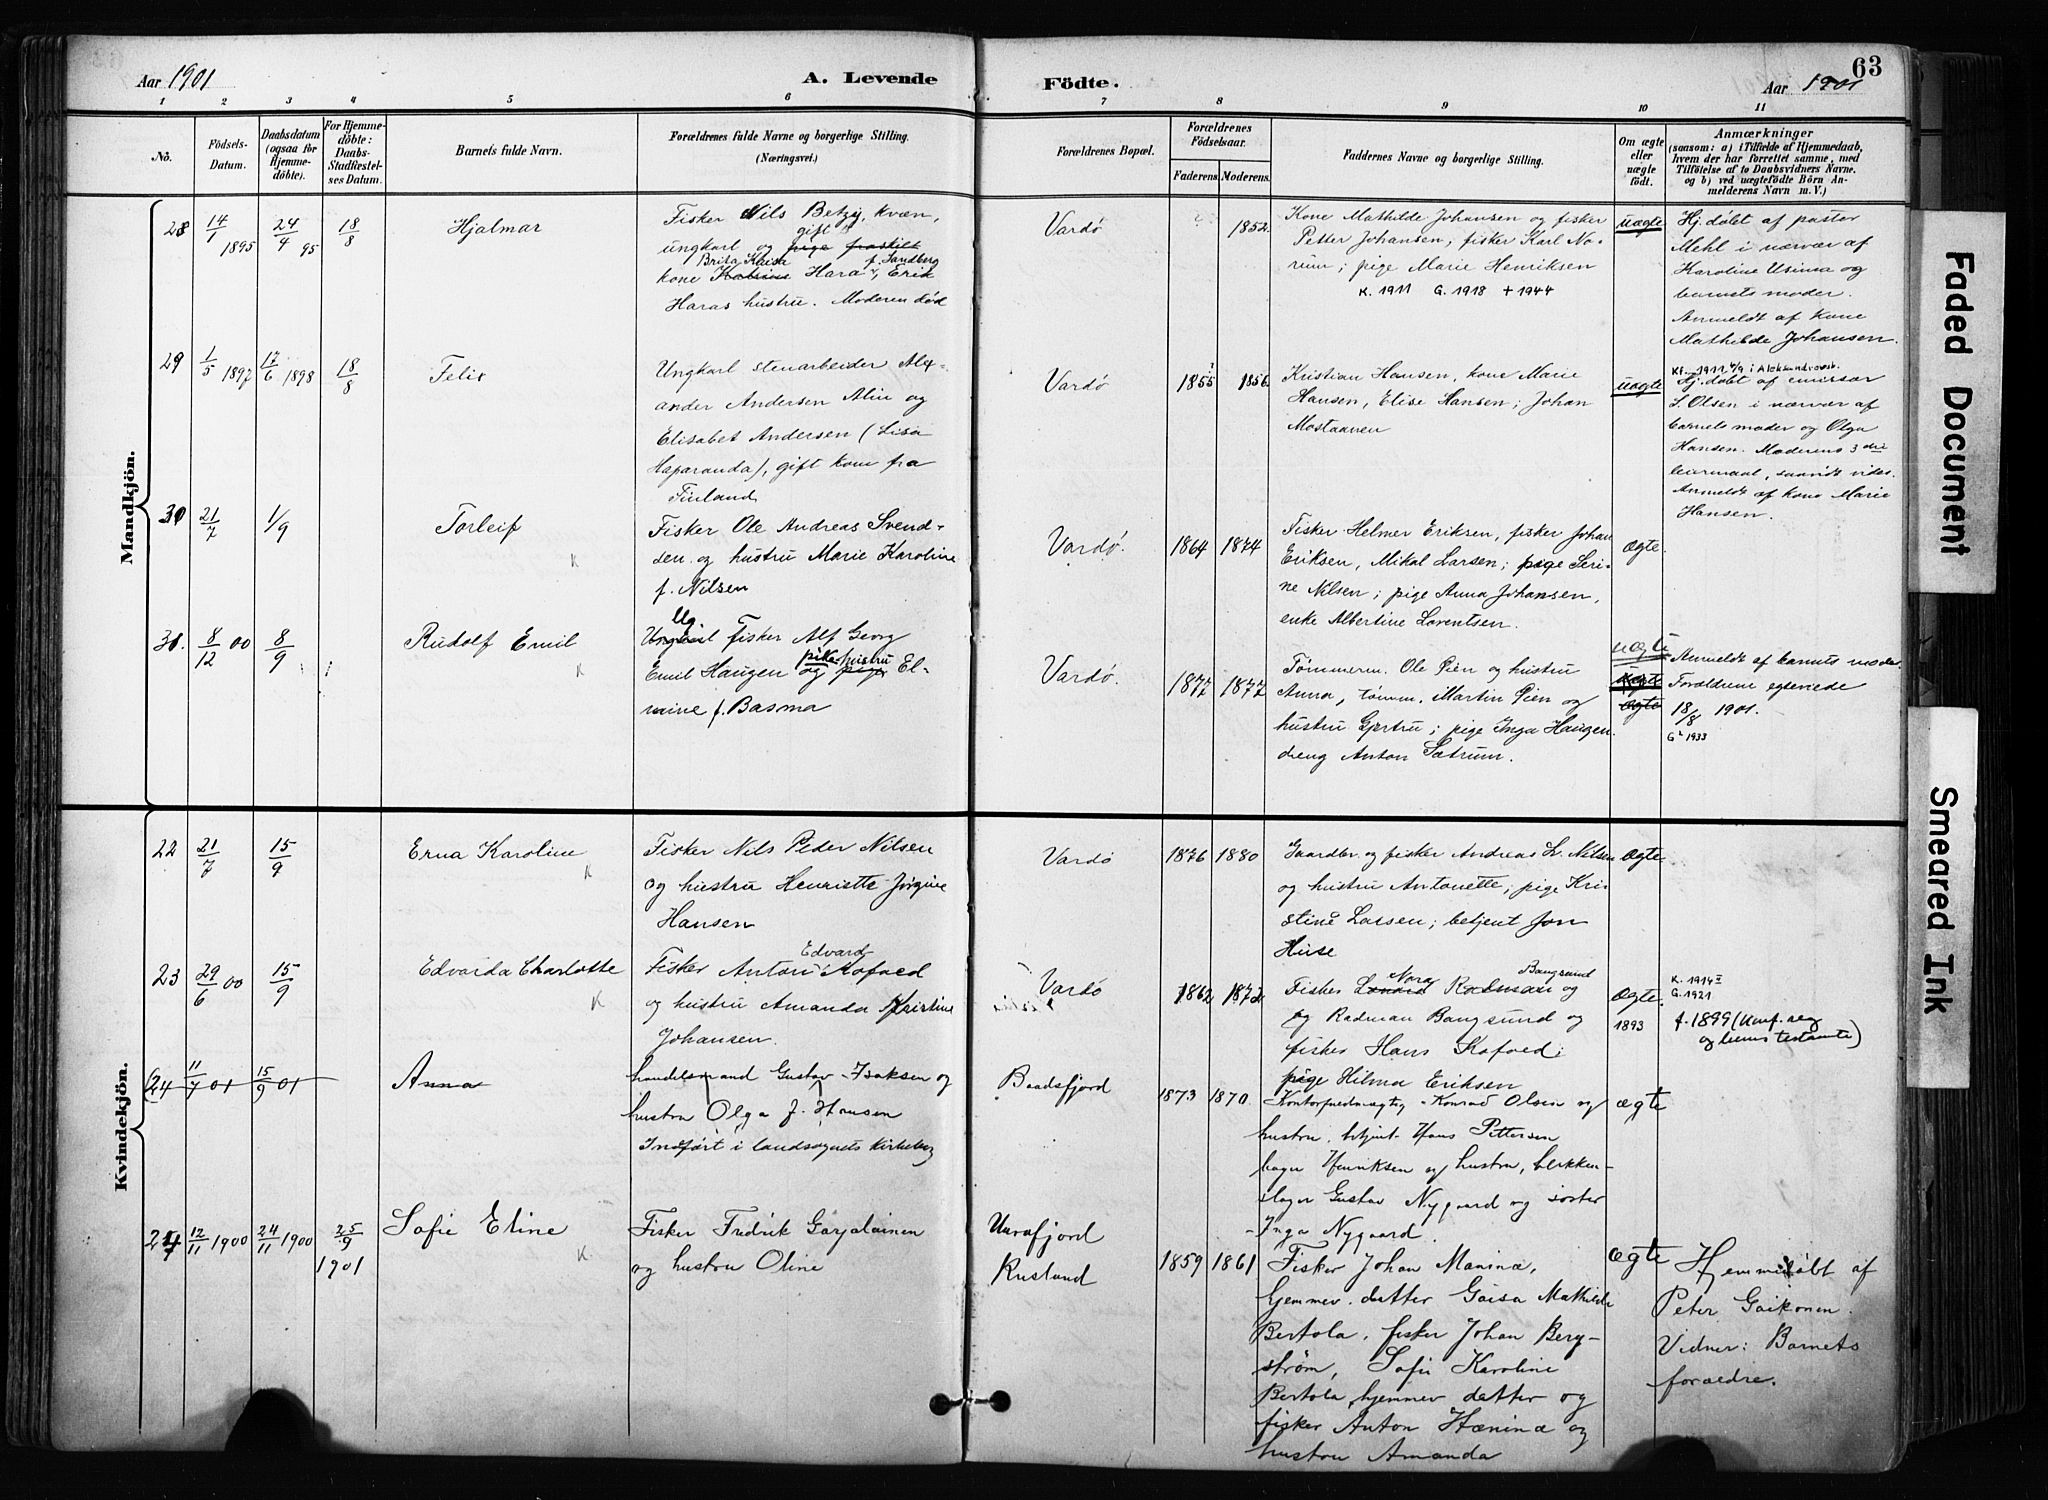 63
Aar 1901
A. Levende
Födte.
Aar 1901
1 2 3 4 5 6 7 8 9 10 11
No.
Födsels-
Datum.
Daabsdatum
(ogsaa for
Hjemme-
döbte).
For Hjemme-
döbte:
Daabs-
Stadfæstel-
ses Datum.
Barnets fulde Navn.
Forældrenes fulde Navne og borgerlige Stilling.
(Næringsvei.)
Forældrenes Bopæl.
Forældrenes
Födselsaar.
Faderens. Moderens.
Faddernes Navne og borgerlige Stilling.
Om ægte
eller
uægte
födt.
Anmærkninger
(saasom: a) i Tilfælde af Hjemmedaab,
hvem der har forrettet samme, med
Tilföielse af to Daabsvidners Navne.
og b) ved uægtefödte Börn An-
melderens Navn m. V.)
Mandkjön.
28 14/1 1895 24/4 95 18/8
Hjalmar
Fisker Nils Betzy, kvæn,
gift
ungkarl og pige fraskilt
Brita Kaisa f. Sandberg
kone Hara, Erik
Haras hustru. Moderen död
Vardø
1852.
Kone Mathilde Johansen og fisker
Petter Johansen, fisker Karl No-
rum; pige Marie Henriksen
K. 1911 G. 1918 + 1944
uægte
Hj. døbt af pastor
Mehl i nærvær af
Karoline Usima og
barnets moder.
Anmeldt af kone
Mathilde Johansen.
29 1/5 1897 17/6 1898 18/8
Felix
Ungkarl stenarbeider Alex-
ander Andersen Alin og
Elisabet Andersen (Lisa
Haparanda), gift kone fra
Finland
Vardø
1855 1856.
Kristian Hansen, kone Marie
Hansen, Elise Hansen; Johan
Mostaanen
uægte
Kf. 1911 i Aleksandrovsk.
Hj. døbt af emissær
S. Olsen i nærvær af
barnets moder og Olga
Hansen. Moderens 3die
leiermaal, saavidt vides.
Anmeldt af kone Marie
Hansen.
30 21/7 1/9
Torleif
K
Fisker Ole Andreas Svend-
sen og hustru Marie Karoline
f. Nilsen
Vardø.
1864 1874
Fisker Helmer Eriksen, fisker Johan
Eriksen, Mikal Larsen; pige Seri-
ne Nilsen; pige Anna Johansen,
enke Albertine Lorentsen.
Ægte.
31. 8/12 00 8/9
Rudolf Emil
K
Ug
Ungkarl Fisker Alf Georg
pike hustru
Emil Haugen og pige El-
mine f. Basma
Vardø.
1877 1877
Tømmerm. Ole Oien og hustru
Anna, tømm. Martin Oien og
hustru Gjertru; pige Inga Haugen,
dreng Anton Sætrum.
uægte
ægte
Anmeldt af barnets moder.
Forældrene egteviede
18/8 1901.
G. 1933
Kvindekjön.
22 21/7 15/9
Erna Karoline
K
Fisker Nils Peder Nilsen
og hustru Henriette Jørgine
Hansen
Vardø
1876 1880
Gaardbr. og fisker Andreas L. Nilsen
og hustru Antonette, pige Kri-
stine Larsen; betjent Jon
Huse
Ægte.
23 29/6 00 15/9
Edvarda Charlotte
K
Edvard
Fisker Anton Kofoed
og hustru Amanda Kristine
Johansen.
Vardø
1862 1872
Nora Bangsund
Fisker Radman og
og Radman Bangsund og
fisker Hans Kofoed;
pige Hilma Eriksen
Ægte.
1893
K. 1914
G. 1921
f. 1899 (Konf. reg
og hennes testamente)
24 11/7 01 15/9 01
Anna
handelsmand Gustav Isaksen og
hustru Olga f. Hansen
Indført i landsognets kirkebog
Baadsfjord
1873 1870.
Kontorfuldmægtig Konrad Olsen og
hustru, betjent Hans Pettersen
bager Henriksen og hustru, blikken-
slager Gustav Nygaard og søster
Inga Nygaard.
ægte
24 12/11 1900 24/11 1900 25/9
1901
Sofie Eline
K
Fisker Fredrik Garjalainen
og hustru Oline
Urafjord
Rusland
1859 1861
Fisker Johan Manina,
hjemmev. datter Gaisa Mathilda
Bertola, fisker Johan Berg-
strøm, Sofie Karoline
Bertola, hjemmev datter og
fisker Anton Hænina og
hustru Amanda
ægte
Hjemmedøbt af
Peter Gaikonen.
Vidner: Barnets
forældre.
Faded Document
Smeared Ink